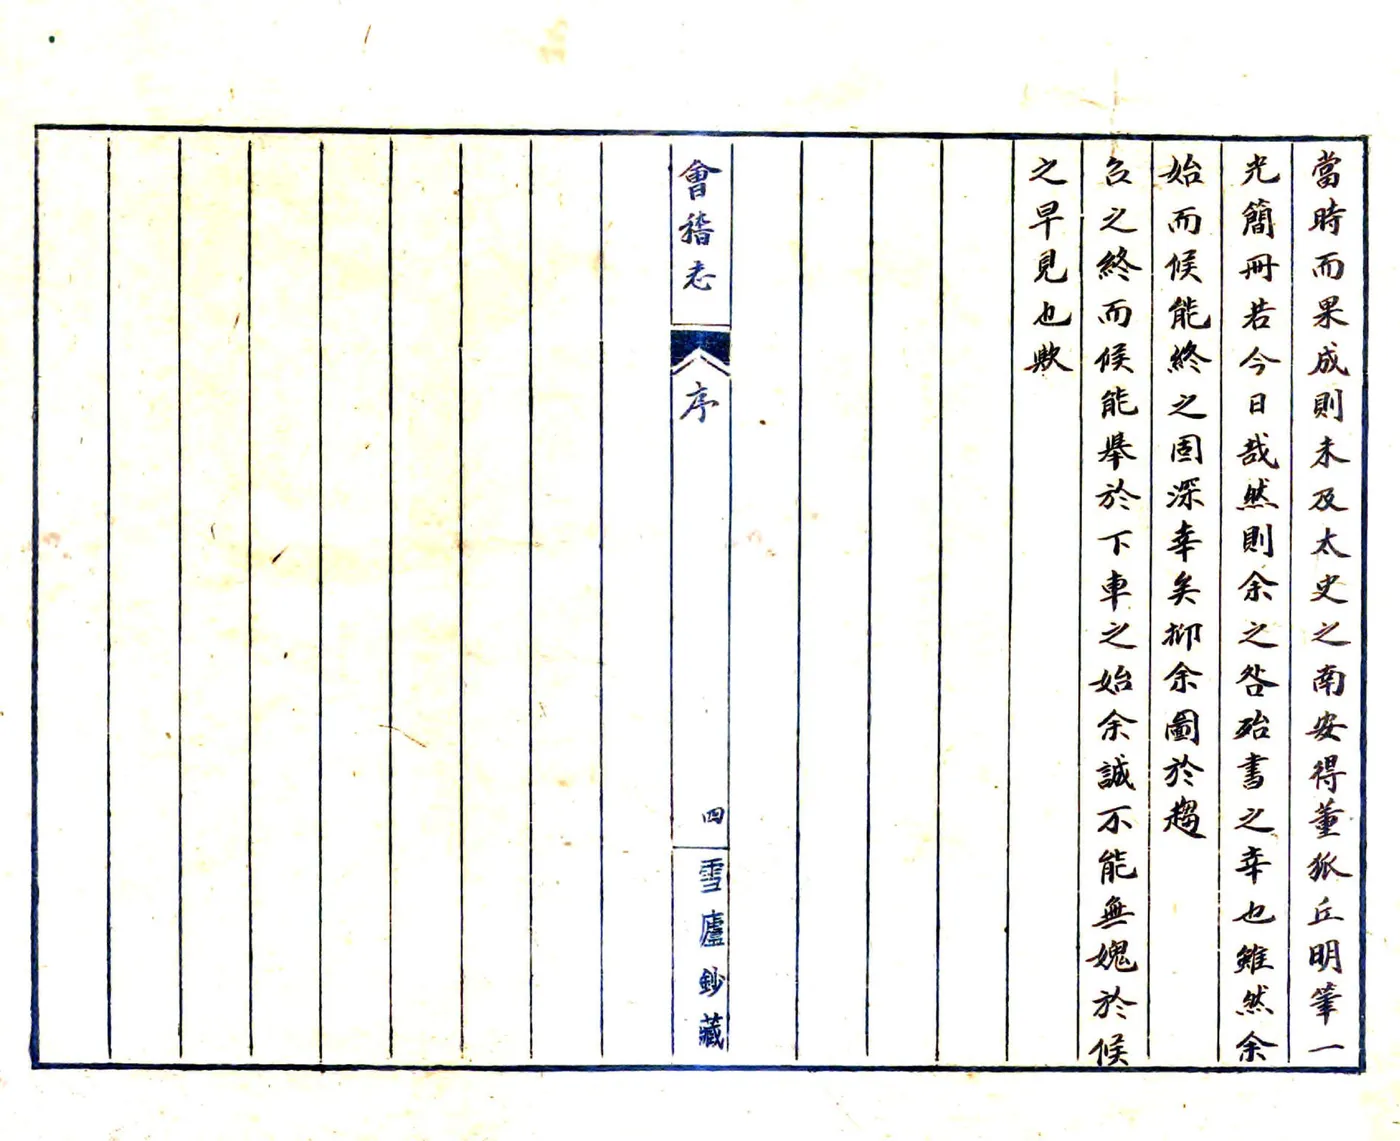 當時而果成則未及太史之南安得董狐丘明筆一
光簡冊若今日哉然則余之咎殆書之幸也雖然余
始而候能終之固深幸矣抑余圖於趨
召之終而候能舉於下車之始余誠不能無媿於候
之早見也歟
會稽志
序
四
雪廬鈔藏